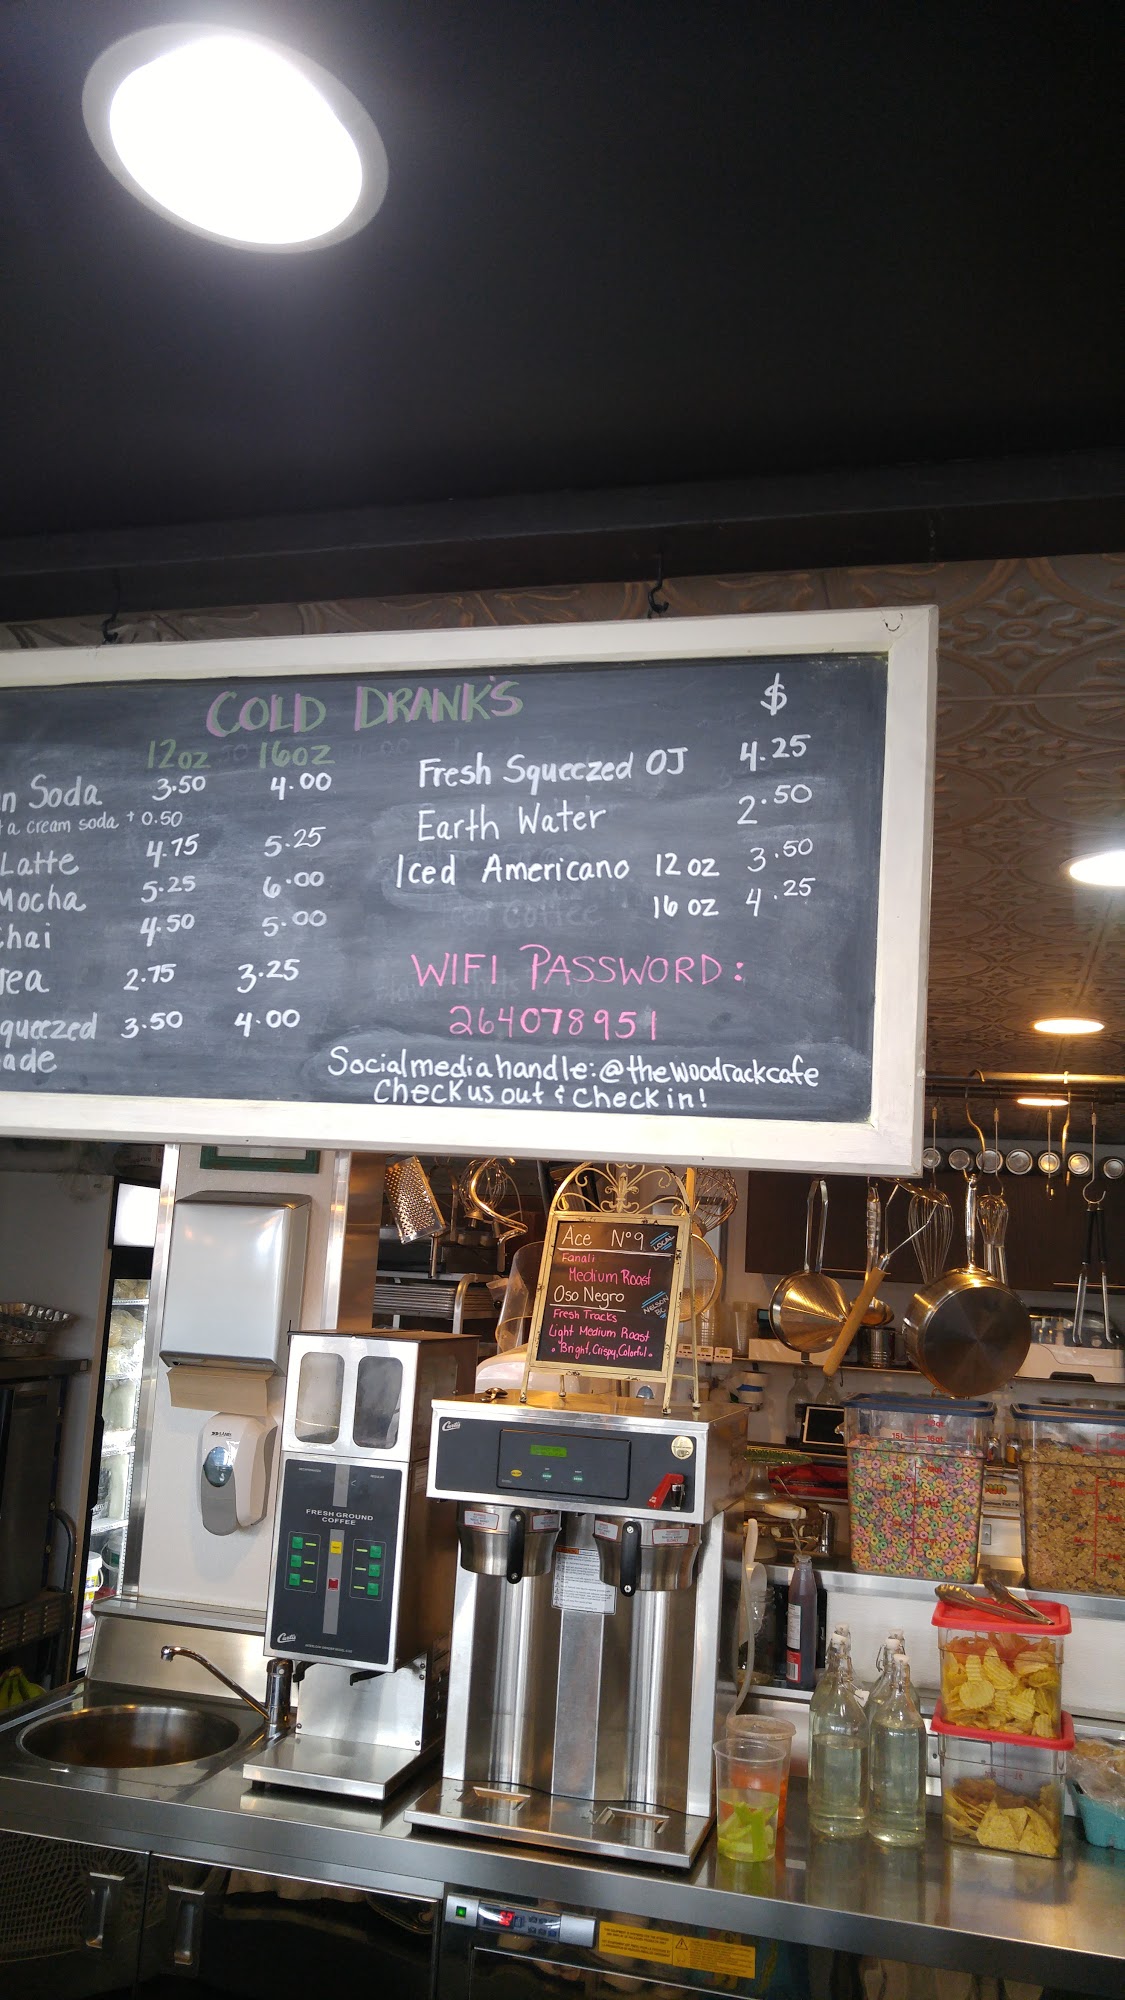 COLD DRANK'S
12oz 16oz
n Soda 3.50 4.00
a cream soda + 0.50
Latte 4.75 5.25
Mocha 5.25 6.00
hai 4.50 5.00
ea 2.75 3.25
queezed 3.50 4.00
ade
$
Fresh Squeezed OJ 4.25
Earth Water 2.50
Iced Americano 12 oz 3.50
16 oz 4.25
WIFI PASSWORD:
264078951
Social media handle: @thewoodrackcafe
Check us out & Check in!
Ace Nº9 LOCAL
Fanali
Medium Roast
Oso Negro
NELSON BC
Fresh Tracks
Light Medium Roast
Bright, Crispy, Colorful
Curtis
FRESH GROUND
COFFEE
Curtis